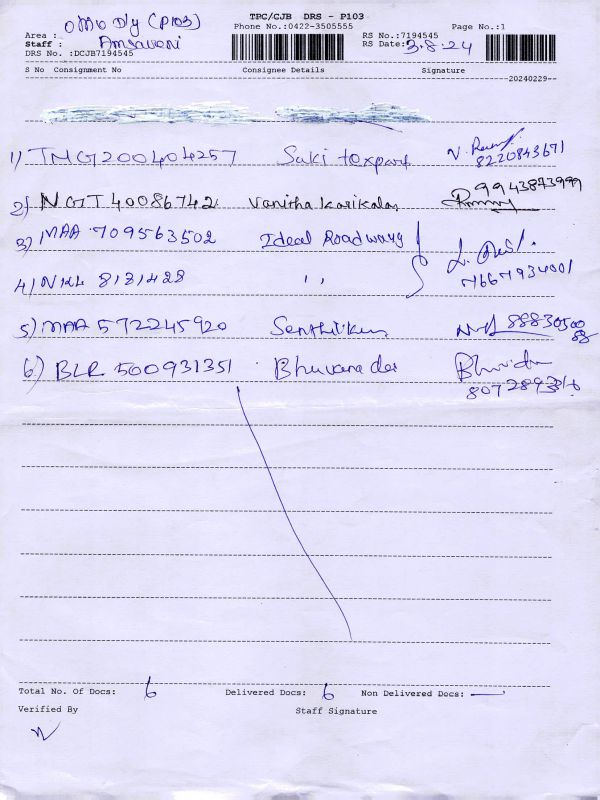 TPC/CJB DRS - P103
Phone No.:0422-3505555 Page No.:1
Area : OMU Dly (P103)
Staff : Amsaveni
RS No.:7194545
RS Date: 3.8.24
DRS No. :DCJB7194545
S No Consignment No Consignee Details Signature
20240229
1) TMG200404257 Saki texpart 8220843671
2) NGT40086742 Vanitha Karikalan 9943873999
3) MAA 709563502 Ideal Roadways
4) NKL 8131428 " 7667934001
5) MAA 572245920 Senthilkum 88830500 88
6) BLR 500931351 Bhuvanades
Total No. Of Docs: 6 Delivered Docs: 6 Non Delivered Docs: —
Verified By Staff Signature